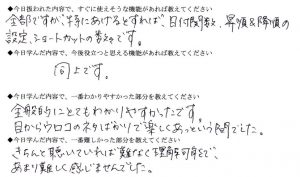 ◆今日扱われた内容で、すぐに使えそうな機能があれば教えてください
全部ですが、特にあげるとすれば、日付関数、昇順&降順の
設定、ショートカットの数々です。
◆今日学んだ内容で、今後役立つと思える機能があれば教えてください
同上です。
◆今日学んだ内容で、一番わかりやすかった部分を教えてください
全般的にとてもわかりやすかったです。
目からウロコのネタばかりで楽しくあっという間でした。
◆今日学んだ内容で、一番難しかった部分があれば教えてください
きちんと聴いていれば難なく理解可能で、
あまり難しく感じませんでした。